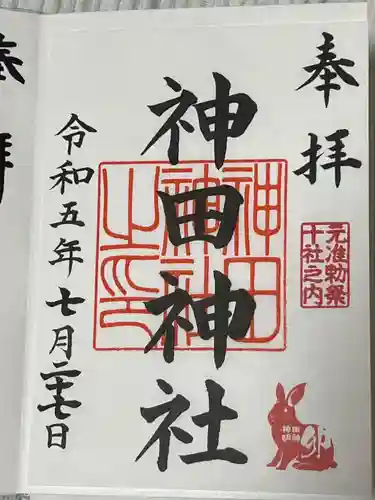 奉拝
元准勅祭
十社之内
神田神社
神田神社之印
令和五年七月二十七日
卯
神田
明神
奉拝